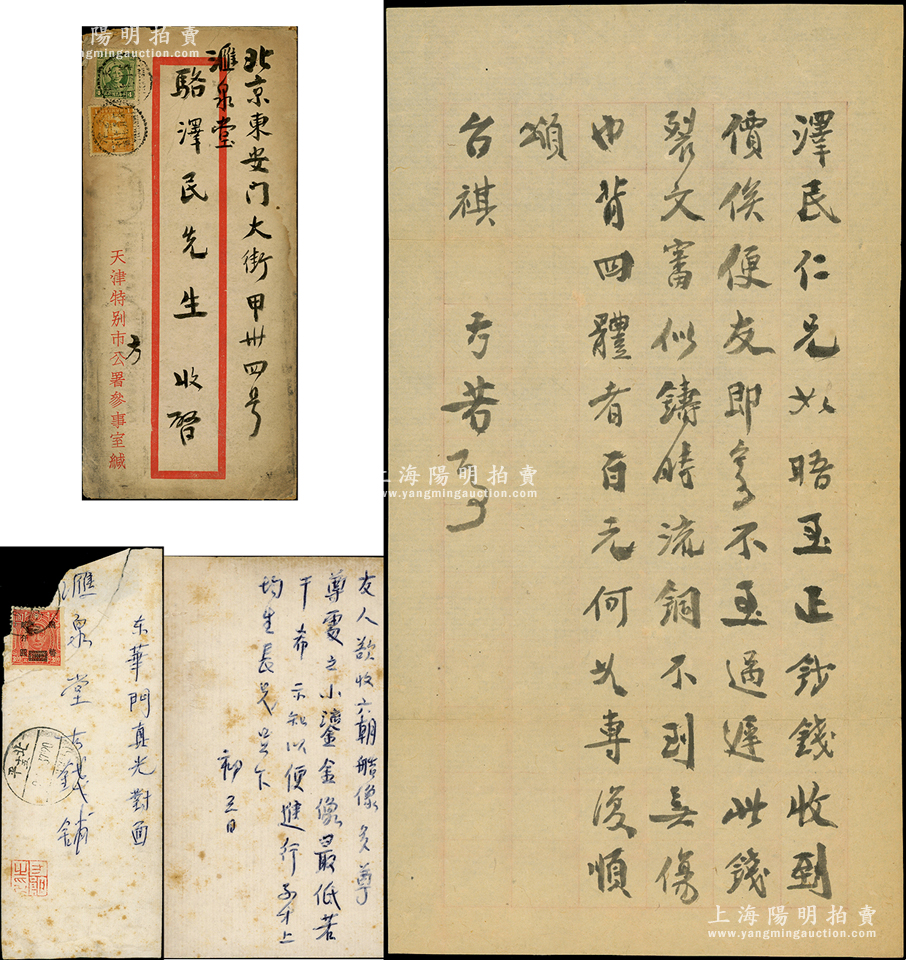 北京東安门大街甲卅四号
滙泉堂
駱澤民先生 收啓
天津特别市公署參事室緘
方
澤民仁兄如晤玉正鈔錢收到
價俟便友即不玉過遲此錢
裂文審似鑄時流銅不到無傷
也背四體者百元何如專復順
頌
台祺 弟若
东華門真光對面
滙泉堂古錢鋪
北平
友人欲收六朝艁像多尊
尊處之小鎏金像最低若
干希示知以便進行子才上
均生長兄
祁 五日
上海陽明拍賣
www.yangmingauction.com
上海陽明拍賣
www.yangmingauction.com
上海陽明拍賣
www.yangmingauction.com